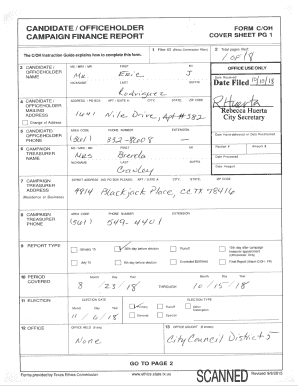 CANDIDATE / OFFICEHOLDER FORM C/OH
CAMPAIGN FINANCE REPORT COVER SHEET PG 1
The C/OH Instruction Guide explains how to complete this form.
1 Filer ID (Ethics Commission Filers) 2 Total pages filed:
1 OF 18
3 CANDIDATE / OFFICEHOLDER NAME
MS / MRS / MR FIRST MI
Mr. Eric J
NICKNAME LAST SUFFIX
Rodriguez
OFFICE USE ONLY
Date Received
Date Filed 10/10/18
RHuerta
Rebecca Huerta
City Secretary
4 CANDIDATE / OFFICEHOLDER MAILING ADDRESS
Change of Address
ADDRESS / PO BOX; APT / SUITE #; CITY; STATE; ZIP CODE
1441 Nile Drive, Apt #582
5 CANDIDATE / OFFICEHOLDER PHONE
AREA CODE PHONE NUMBER EXTENSION
(361) 332-8608
Date Hand-delivered or Date Postmarked
Receipt # Amount $
Date Processed
Date Imaged
6 CAMPAIGN TREASURER NAME
MS / MRS / MR FIRST MI
Mrs Brenda
NICKNAME LAST SUFFIX
Cawley
7 CAMPAIGN TREASURER ADDRESS
(Residence or Business)
STREET ADDRESS (NO PO BOX PLEASE); APT / SUITE #; CITY; STATE; ZIP CODE
4914 Blackjack Place, CC TX 78416
8 CAMPAIGN TREASURER PHONE
AREA CODE PHONE NUMBER EXTENSION
(361) 549-4401
9 REPORT TYPE
January 15 30th day before election Runoff 15th day after campaign treasurer appointment (Officeholder Only)
July 15 8th day before election Exceeded $500 limit Final Report (Attach C/OH - FR)
10 PERIOD COVERED
Month Day Year Month Day Year
8 / 23 / 18 THROUGH 10 / 15 / 18
11 ELECTION
ELECTION DATE ELECTION TYPE
Month Day Year Primary Runoff Other Description
11 / 6 / 18 General Special
12 OFFICE
OFFICE HELD (if any)
None
13 OFFICE SOUGHT (if known)
City Council District 5
GO TO PAGE 2
Forms provided by Texas Ethics Commission www.ethics.state.tx.us Revised 9/8/2015
SCANNED